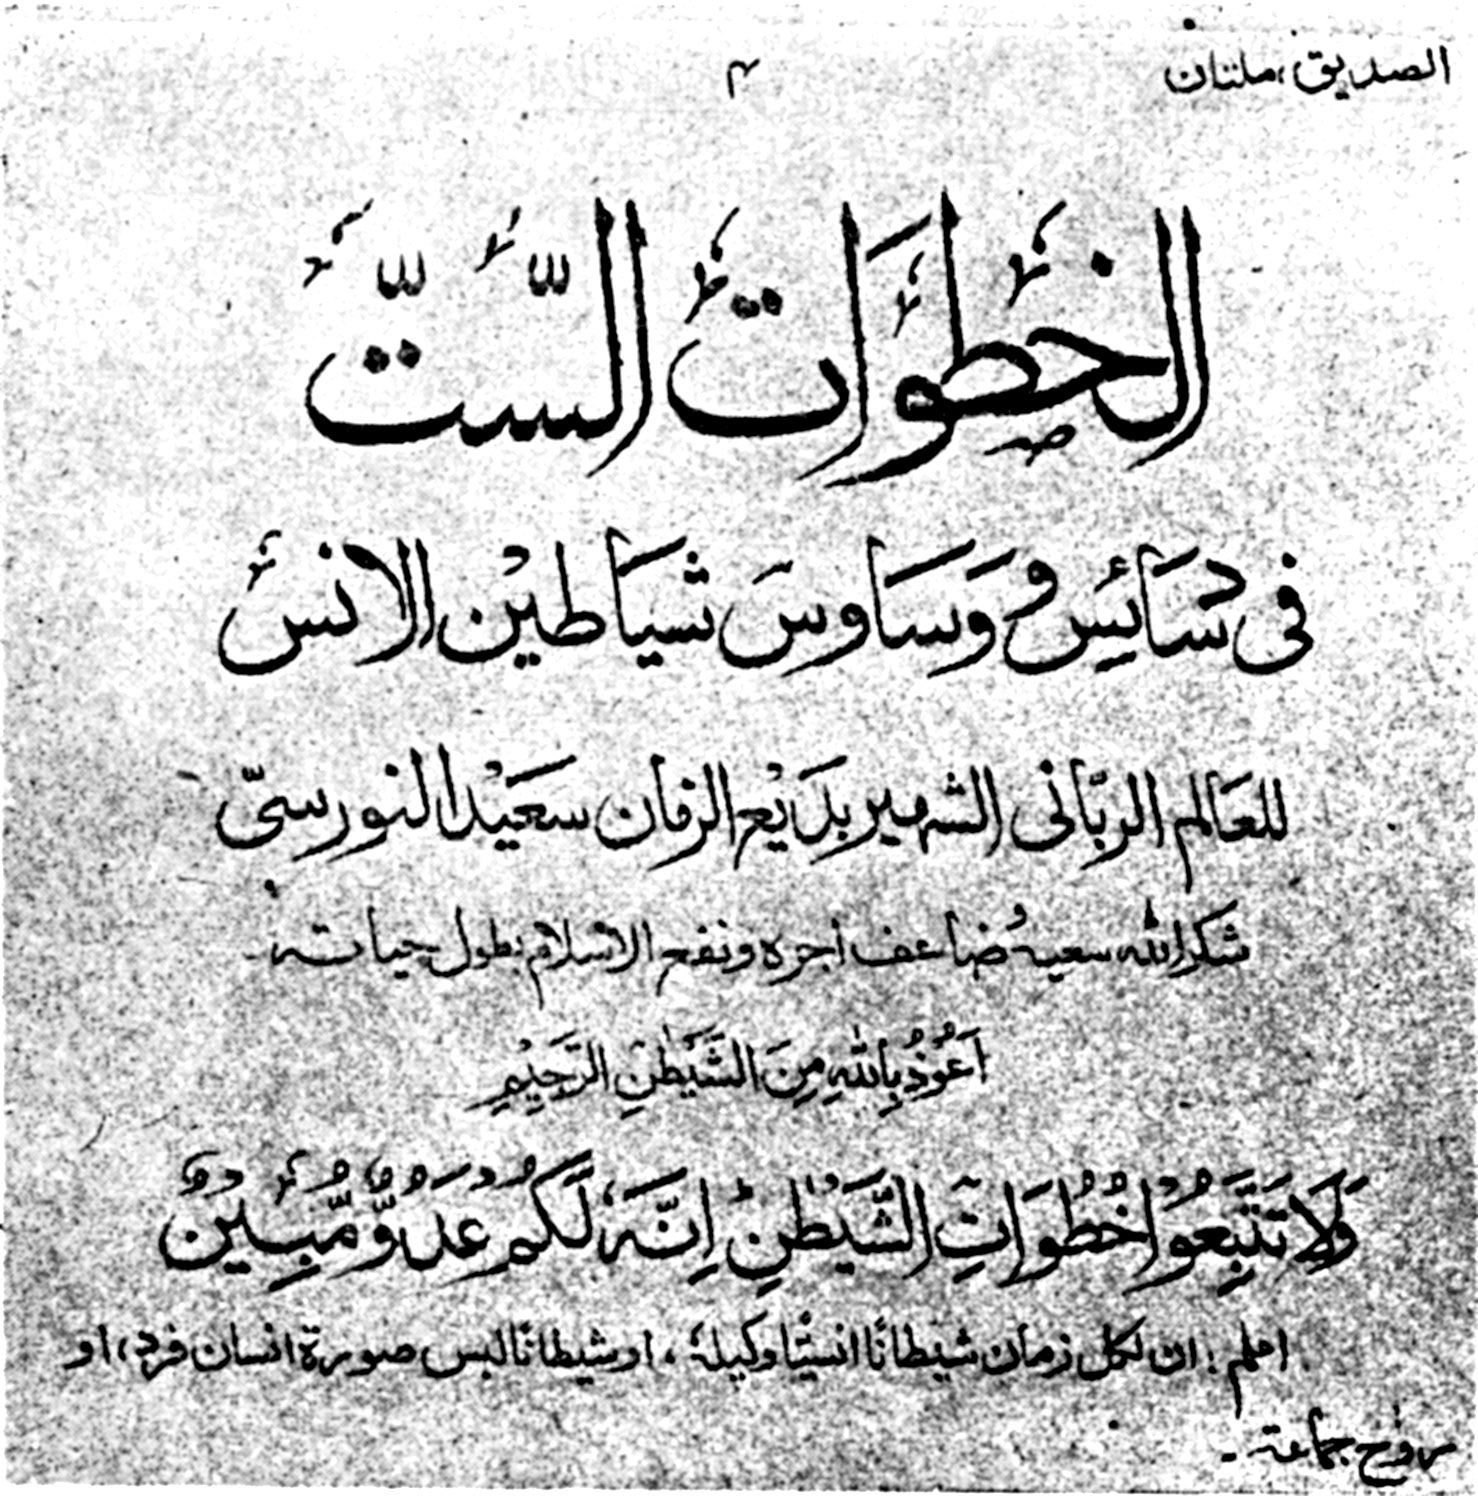 الصدیق، ملتان
۴
الخطوات الست
فی دسائس و وساوس شیاطین الانس
للعالم الربانی الشهیر بدیع الزمان سعید النورسی
شکر الله سعیه ضاعف اجره ونفع الاسلام بطول حیاته۔
اَعُوْذُ بِاللّٰهِ مِنَ الشَّیْطٰنِ الرَّجِیْمِ
وَلَا تَتَّبِعُوْا خُطُوَاتِ الشَّیْطٰنِ اِنَّهٗ لَکُمْ عَدُوٌّ مُّبِیْنٌ
اعلم: ان لکل زمان شیطانًا انسیًا وکیلهٗ، او شیطانًا لبس صورة انسان فرد، او
روح جماعته۔